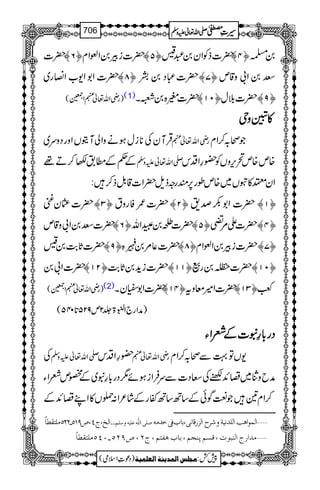 سیرت مصطفیٰ صلی اللہ تعالیٰ علیہ وسلم 706
بن مسلمہ ﴿۴﴾ حضرت ذکوان بن عبد قیس ﴿۵﴾ حضرت زبیر بن العوام ﴿۶﴾ حضرت
سعد بن ابی وقاص ﴿۷﴾ حضرت عباد بن بشر ﴿۸﴾ حضرت ابو ایوب انصاری
﴿۹﴾ حضرت بلال ﴿۱۰﴾ حضرت مغیرہ بن شعبہ۔ (1) (رضی اللہ تعالیٰ عنہم اجمعین)
کاتبین وحی
جو صحابہ کرام رضی اللہ تعالیٰ عنہم قرآن کی نازل ہونے والی آیتوں اور دوسری
خاص خاص تحریروں کو حضور اقدس صلی اللہ تعالیٰ علیہ وسلم کے حکم کے مطابق لکھا کرتے تھے
ان معتمد کاتبوں میں خاص طور پر مندرجہ ذیل حضرات قابل ذکر ہیں:
﴿۱﴾ حضرت ابو بکر صدیق ﴿۲﴾ حضرت عمر فاروق ﴿۳﴾ حضرت عثمان غنی
﴿۴﴾ حضرت علی مرتضی ﴿۵﴾ حضرت طلحہ بن عبید اللہ ﴿۶﴾ حضرت سعد بن ابی وقاص
﴿۷﴾ حضرت زبیر بن العوام ﴿۸﴾ حضرت عامر بن فہیرہ ﴿۹﴾ حضرت ثابت بن قیس
﴿۱۰﴾ حضرت حنظلہ بن ربیع ﴿۱۱﴾ حضرت زید بن ثابت ﴿۱۲﴾ حضرت ابی بن
کعب ﴿۱۳﴾ حضرت امیر معاویہ ﴿۱۴﴾ حضرت ابو سفیان۔ (2) (رضی اللہ تعالیٰ عنہم اجمعین)
(مدارج النبوۃ جلد ۲ ص ۵۲۹ تا ۵۴۰)
دربار نبوت کے شعراء
یوں تو بہت سے صحابہ کرام رضی اللہ تعالیٰ عنہم حضور اقدس صلی اللہ تعالیٰ علیہ وسلم کی
مدح و ثنا میں قصائد لکھنے کی سعادت سے سرفراز ہوئے مگر دربار نبوی کے مخصوص شعراء
کرام تین ہیں جو نعت گوئی کے ساتھ ساتھ کفار کے شاعرانہ حملوں کا اپنے قصائد کے
1 ......المواهب اللدنية و شرح الزرقانى، باب فی خدمه صلی اللہ علیہ وسلم...الخ، ج٤، ص٥١٩-٥٢٢ ملتقطاً
2 ......مدارج النبوت ، قسم پنجم ، باب هفتم ، ج٢ ، ص٥٢٩-٥٤٠ ملتقطاً
پیش کش: مجلس المدينة العلمية (دعوت اسلامی)